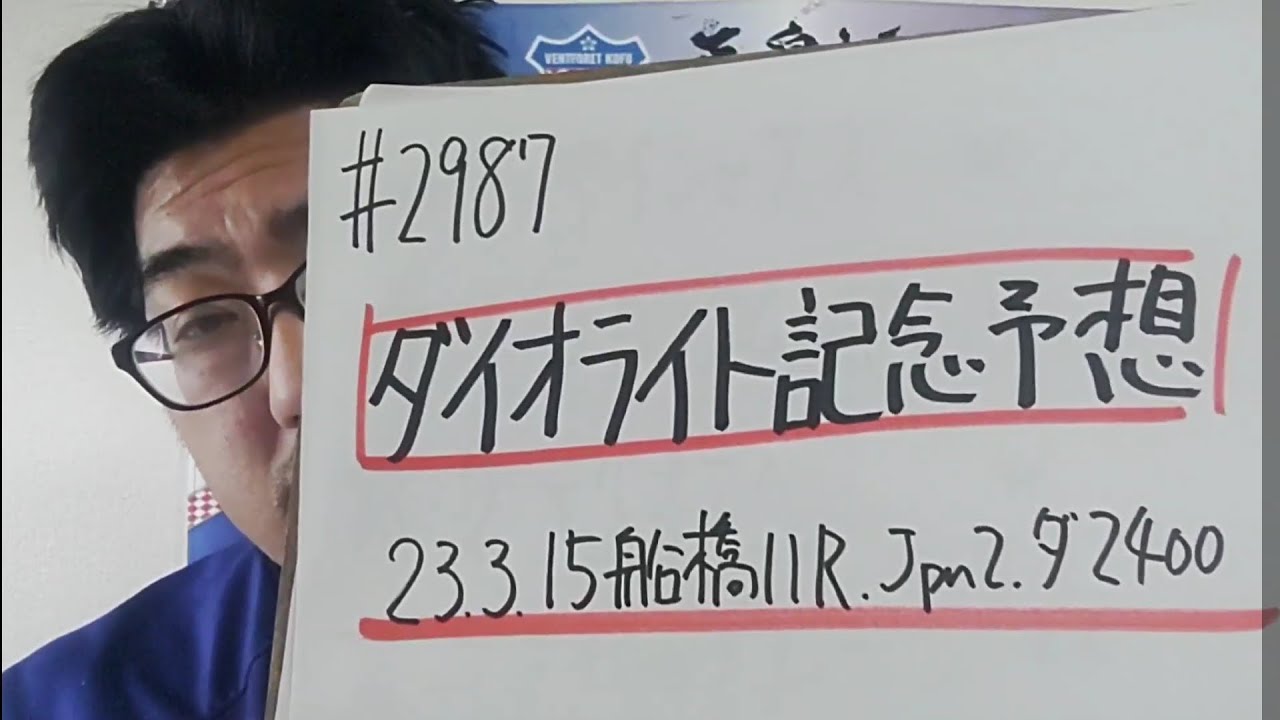 VENTFORET KOFU
#2987
ダイオライト記念予想
23.3.15船橋11R.Jpn2.ダ2400